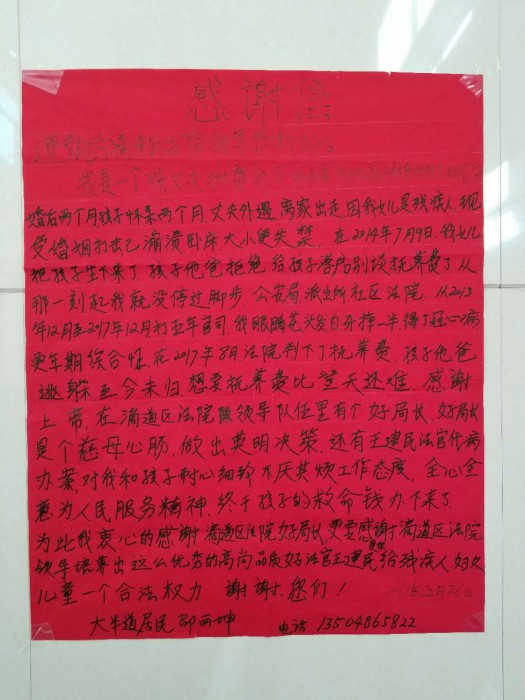 感谢信
我是一个残
婚后两个月孩子怀来两个月,丈夫外遇离家出走,因我女儿是残疾人,现
受婚姻打击已崩溃卧床,大小便失禁,在2014年7月9日,我女儿
把孩子生下来了,孩子他爸拒绝给孩子落户别谈抚养费了,从
那一刻起我就没停过脚步,公安局派出所社区法院,从2013
年12月至2017年12月打五年官司,我眼睛花头发白牙掉一半,得了冠心病
更年期综合性,在2017年8月法院判下了抚养费,孩子他爸
逃躲至今未归,想要抚养费比登天还难,感谢
上帝,在滴道区法院领导队伍里有个好局长,好局长
是个慈母心肠,做出英明决策,还有王建民法官代病
办案,对我和孩子耐心细致不厌其烦工作态度,全心全
意为人民服务精神,终于孩子的救命钱办下来了,
为此我衷心的感谢滴道区法院好局长,更要感谢滴道区法院
领导培养出这么优秀的高尚品质好法官王建民给残疾人,妇女
儿童一个合法权力,谢谢,您们!
大半道居民 邵丙坤 电话 13504865822